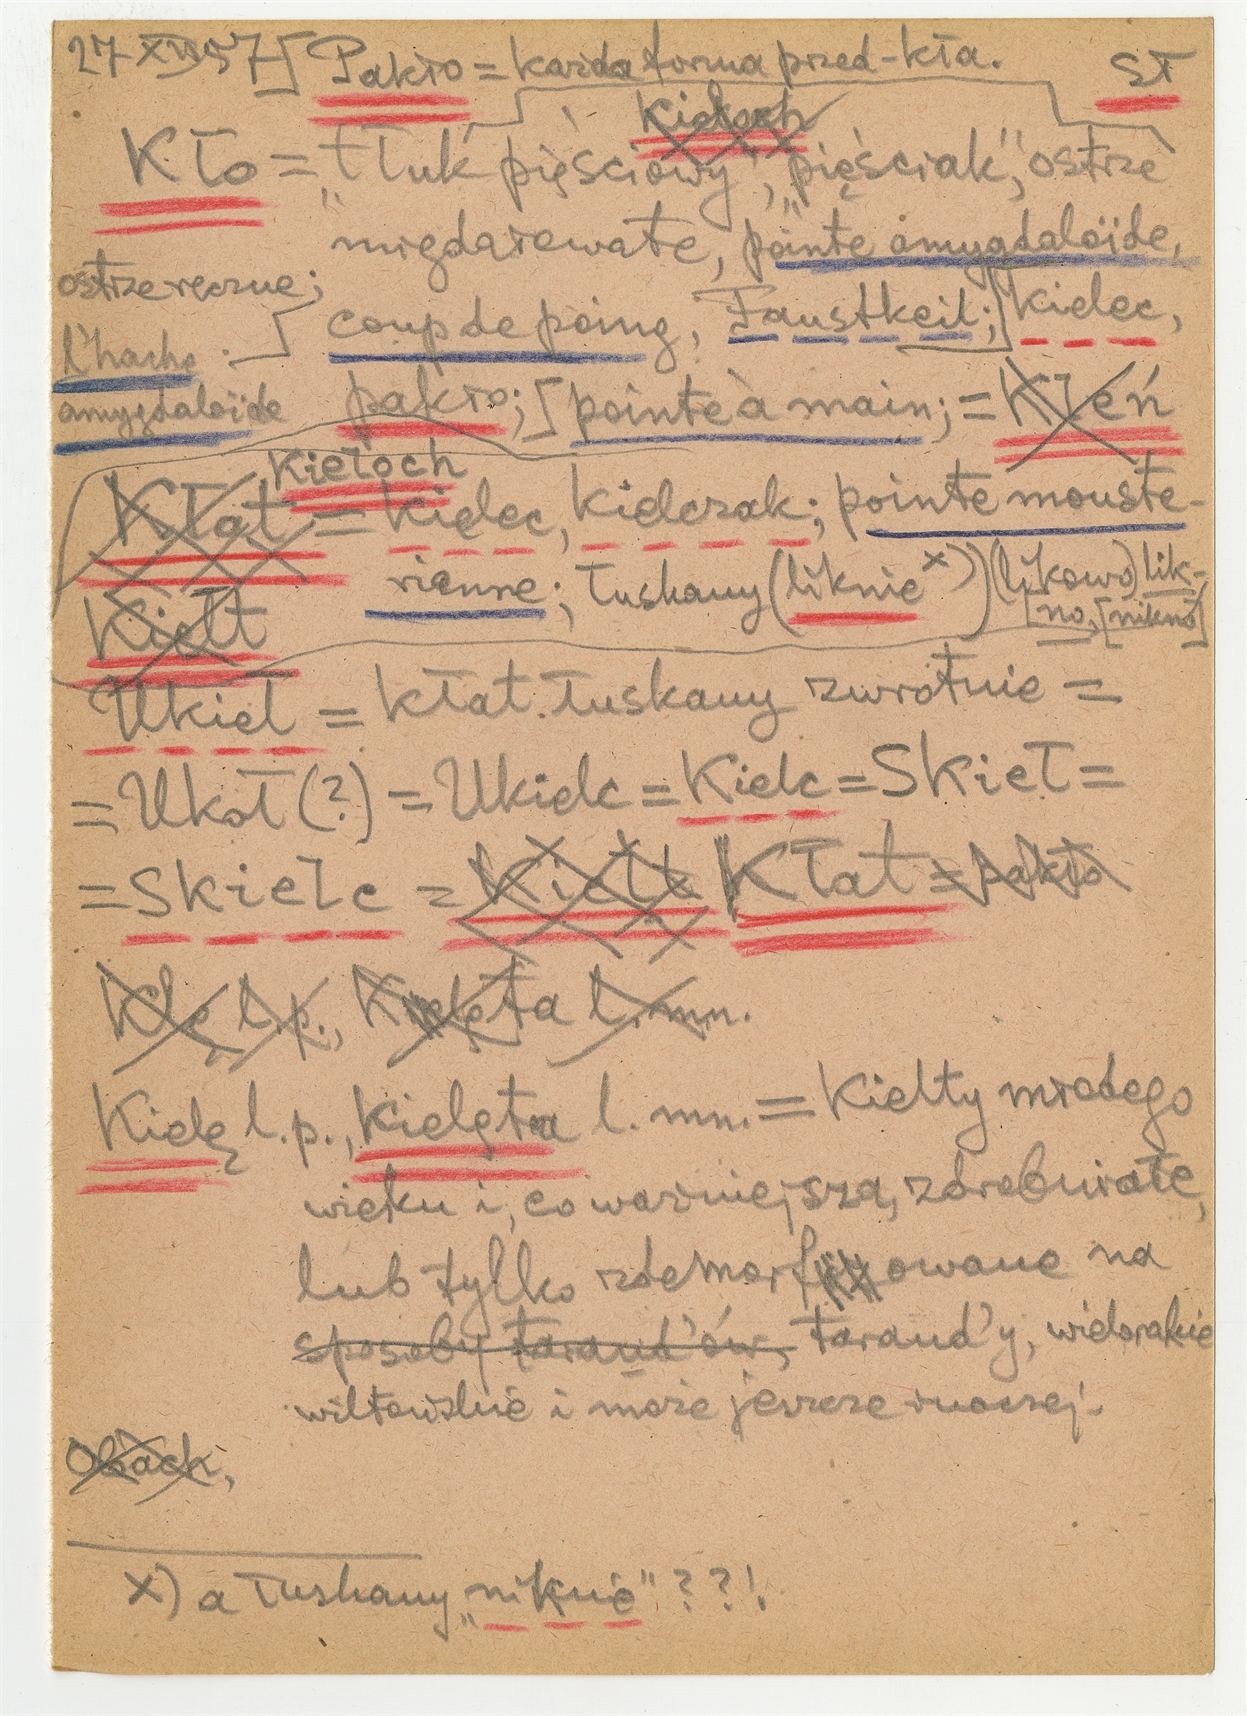 27 XII 57 [Pakło = każda forma przed-kła. SŁ
Kiełoch
Kło = „tłuk pięściowy", „pięściak", ostrze
migdałowate, pointe amygdaloïde,
ostrze ręczne;
coup de poing, Faustkeil; [kielec,
l'hache
amygdaloïde pakło; [pointe à main; = Kleń
Kiełoch
Kłat = kielec, kielczak; pointe mousté-
rienne; łuskany (liknie x)) (likowo) lik-
no, [nikno]
Kiełt
Ukieł = kłat łuskany zwrotnie =
= Ukoł (?) = Ukielc = Kielc = Skieł =
= Skielc = Kiełt Kłat = pakło
Klę l.p., Kielęta l. mn.
Kielę l.p., Kielęta l. mn. = Kiełty młodego
wieku i, co ważniejsza, zdrobniałe,
lub tylko zdemorfizowane na
sposoby tarand'ów, tarand'y, wielorakie
wiltowskie i może jeszcze inaczej.
x) a łuskany „niknie"??!